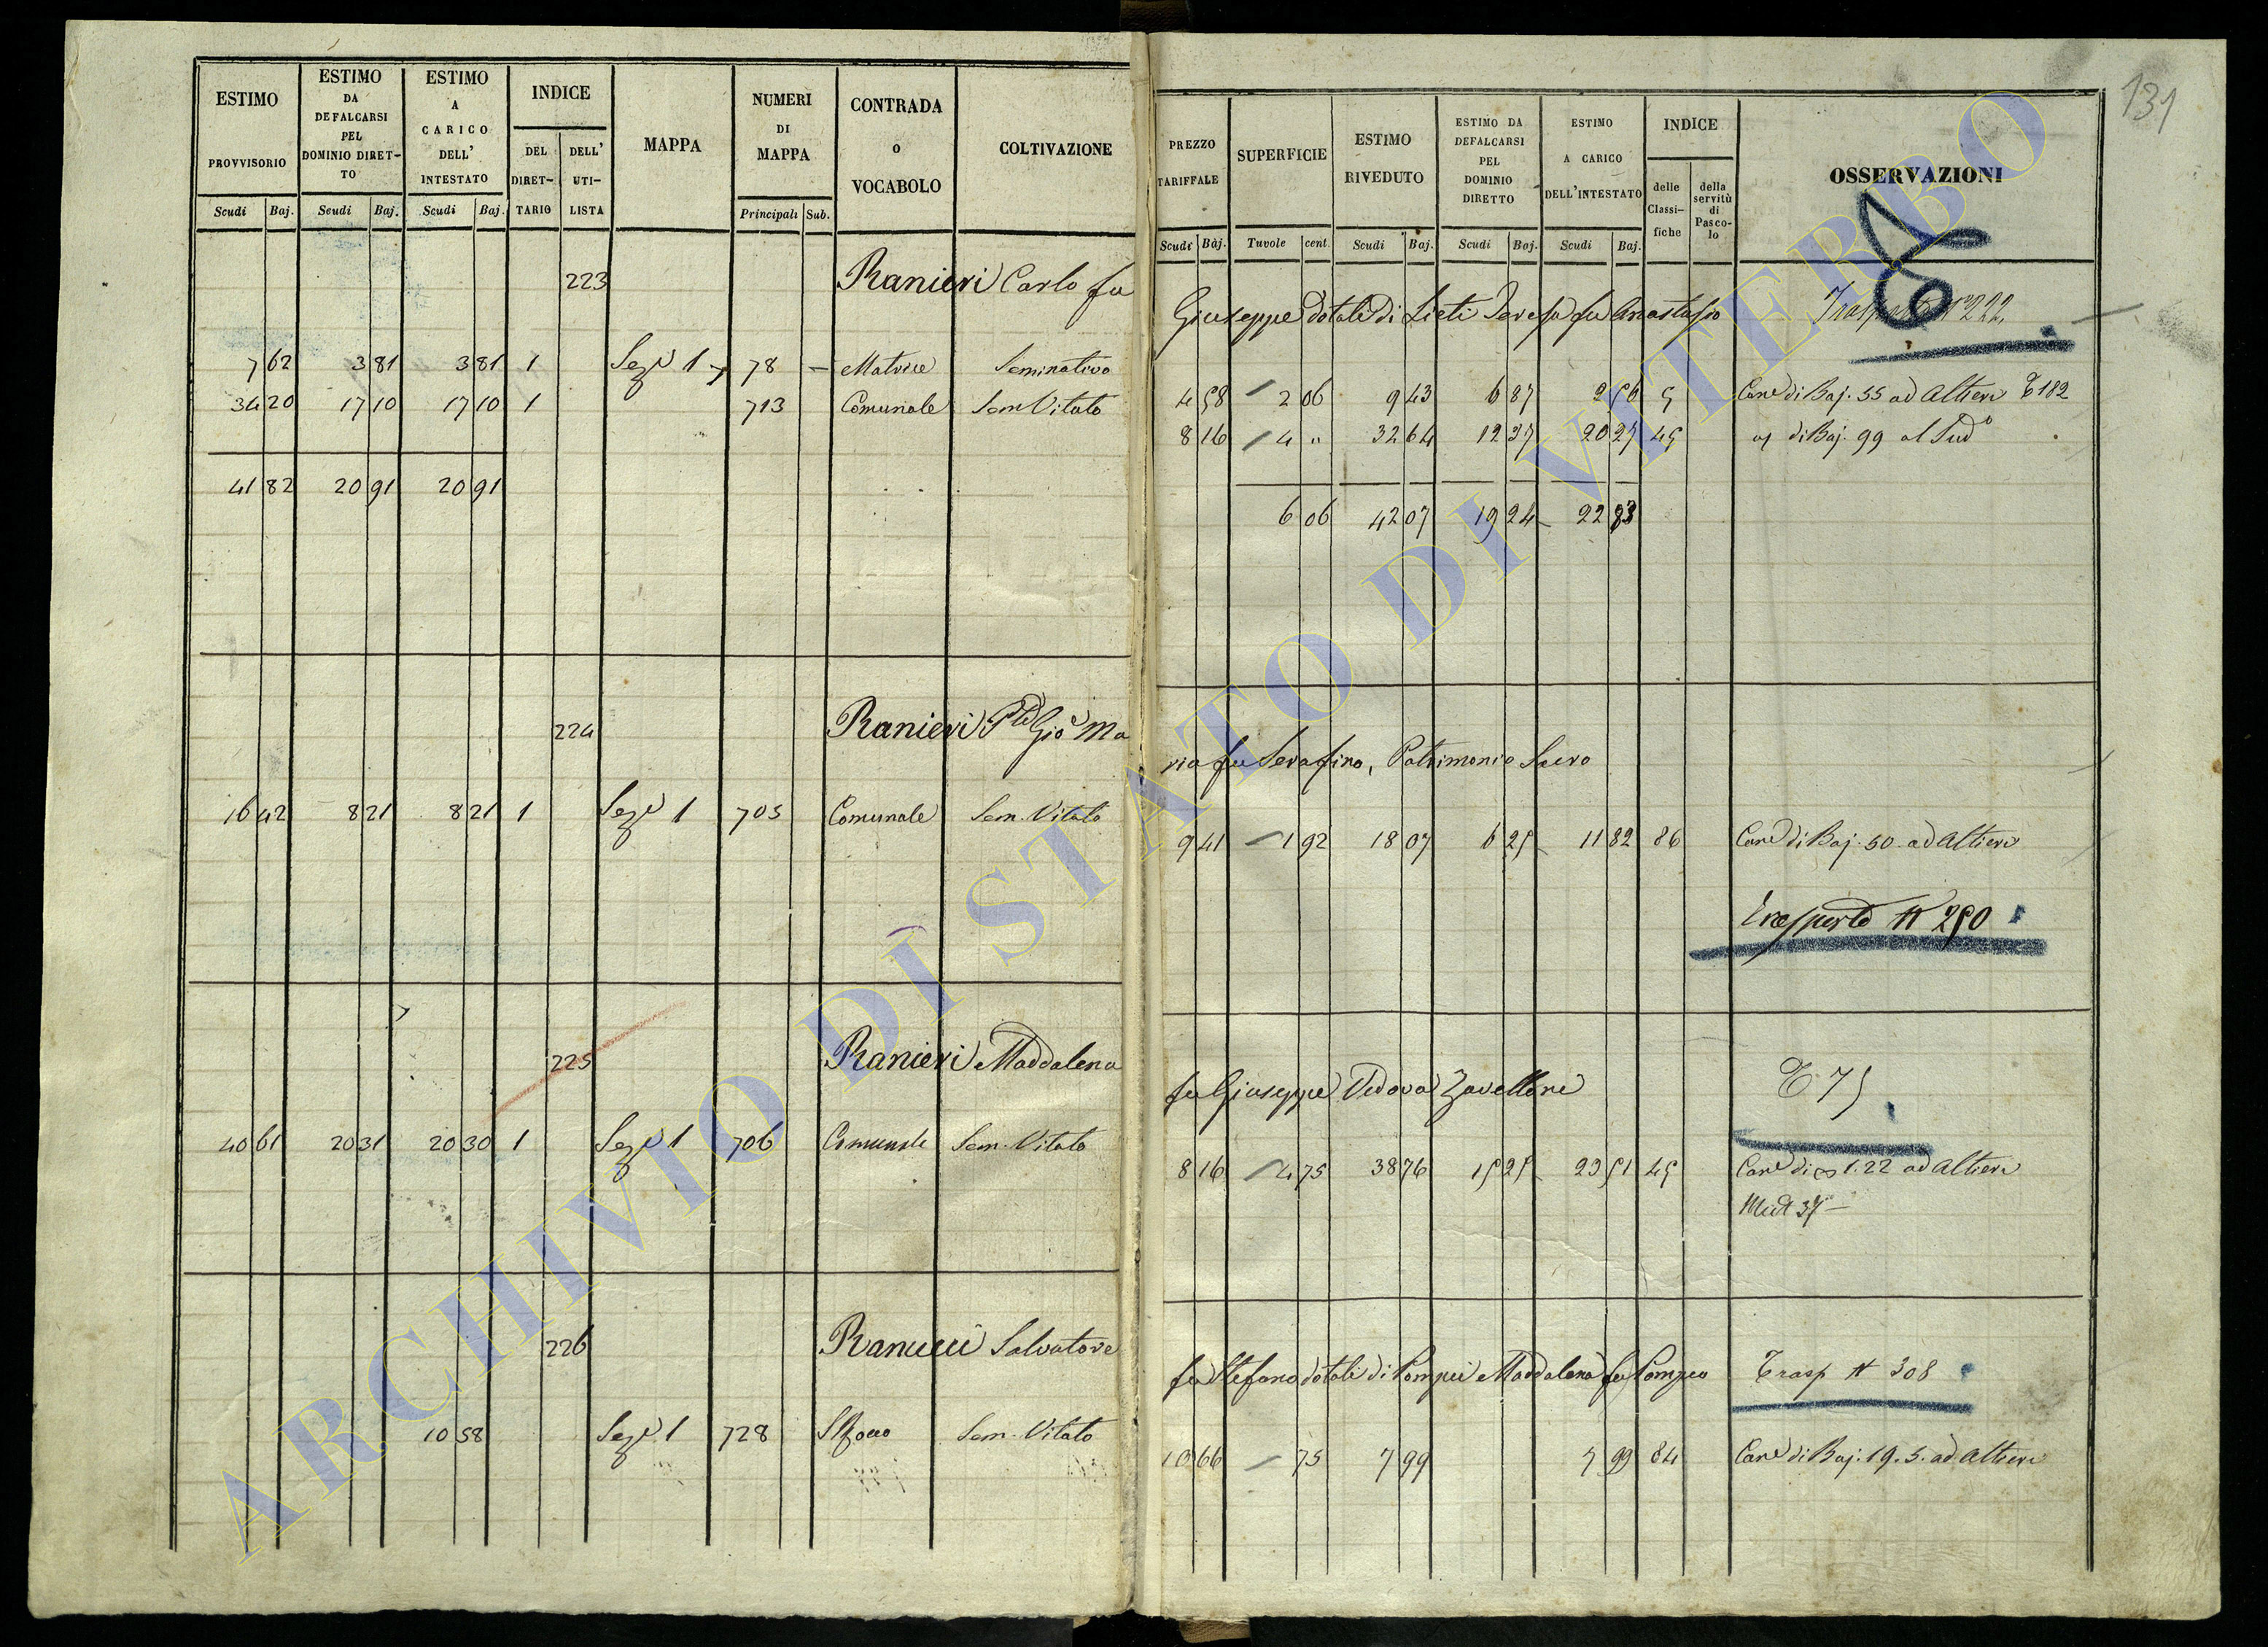 131
ESTIMO PROVVISORIO Scudi Baj.
ESTIMO DA DEFALCARSI PEL DOMINIO DIRET-TO Scudi Baj.
ESTIMO A CARICO DELL' INTESTATO Scudi Baj.
INDICE DEL DIRET-TARIO DELL' UTI-LISTA
MAPPA
NUMERI DI MAPPA Principali Sub.
CONTRADA o VOCABOLO
COLTIVAZIONE
PREZZO TARIFFALE Scudi Baj.
SUPERFICIE Tavole cent.
ESTIMO RIVEDUTO Scudi Baj.
ESTIMO DA DEFALCARSI PEL DOMINIO DIRETTO Scudi Baj.
ESTIMO A CARICO DELL'INTESTATO Scudi Baj.
INDICE delle Classi-fiche della servitù di Pasco-lo
OSSERVAZIONI
223 Ranieri Carlo fu
Giuseppe dotale di Lieti Teresa fu Anastasio 222
7 62 3 81 3 81 1 Sez.e 1 78 — Matrice Seminativo
4 58 2 06 9 43 6 87 2 56 5 Can.e di Baj. 55 ad Altieri T 182
34 20 17 10 17 10 1 713 Comunale Sem Vitato
8 16 4 " 32 64 12 37 20 27 45 di Baj. 99 al Sud.o
41 82 20 91 20 91
6 06 42 07 19 24 22 83
224 Ranieri Gio Ma
ria fu Serafino, Patrimonio Sacro
16 42 8 21 8 21 1 Sez.e 1 705 Comunale Sem. Vitato
9 41 1 92 18 07 6 25 11 82 86 Can.e di Baj. 50 ad Altieri
Trasporto N 250
225 Ranieri Maddalena
fu Giuseppe Vedova Zavettieri T 75
40 61 20 31 20 30 1 Sez.e 1 706 Comunale Sem. Vitato
8 16 4 75 38 76 15 25 23 51 45 Can.e di 1.22 ad Altieri
37
226 Ranucci Salvatore
fu Stefano dotale di Pompei Maddalena fu Pompeo Trasp N 308
10 58 Sez.e 1 728 S Rocco Sem. Vitato
10 66 75 7 99 7 99 84 Can.e di Baj. 19.5. ad Altieri
ARCHIVIO DI STATO DI VITERBO